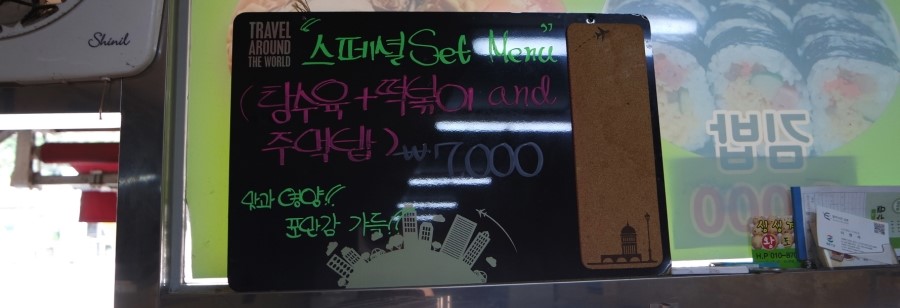 Shinil
TRAVEL
AROUND
THE WORLD
"스페셜 Set Menu"
(탕수육+떡볶이 and
주먹밥) ₩7,000
맛과 영양!!
포만감 가득!!
김밥
H.P 010-